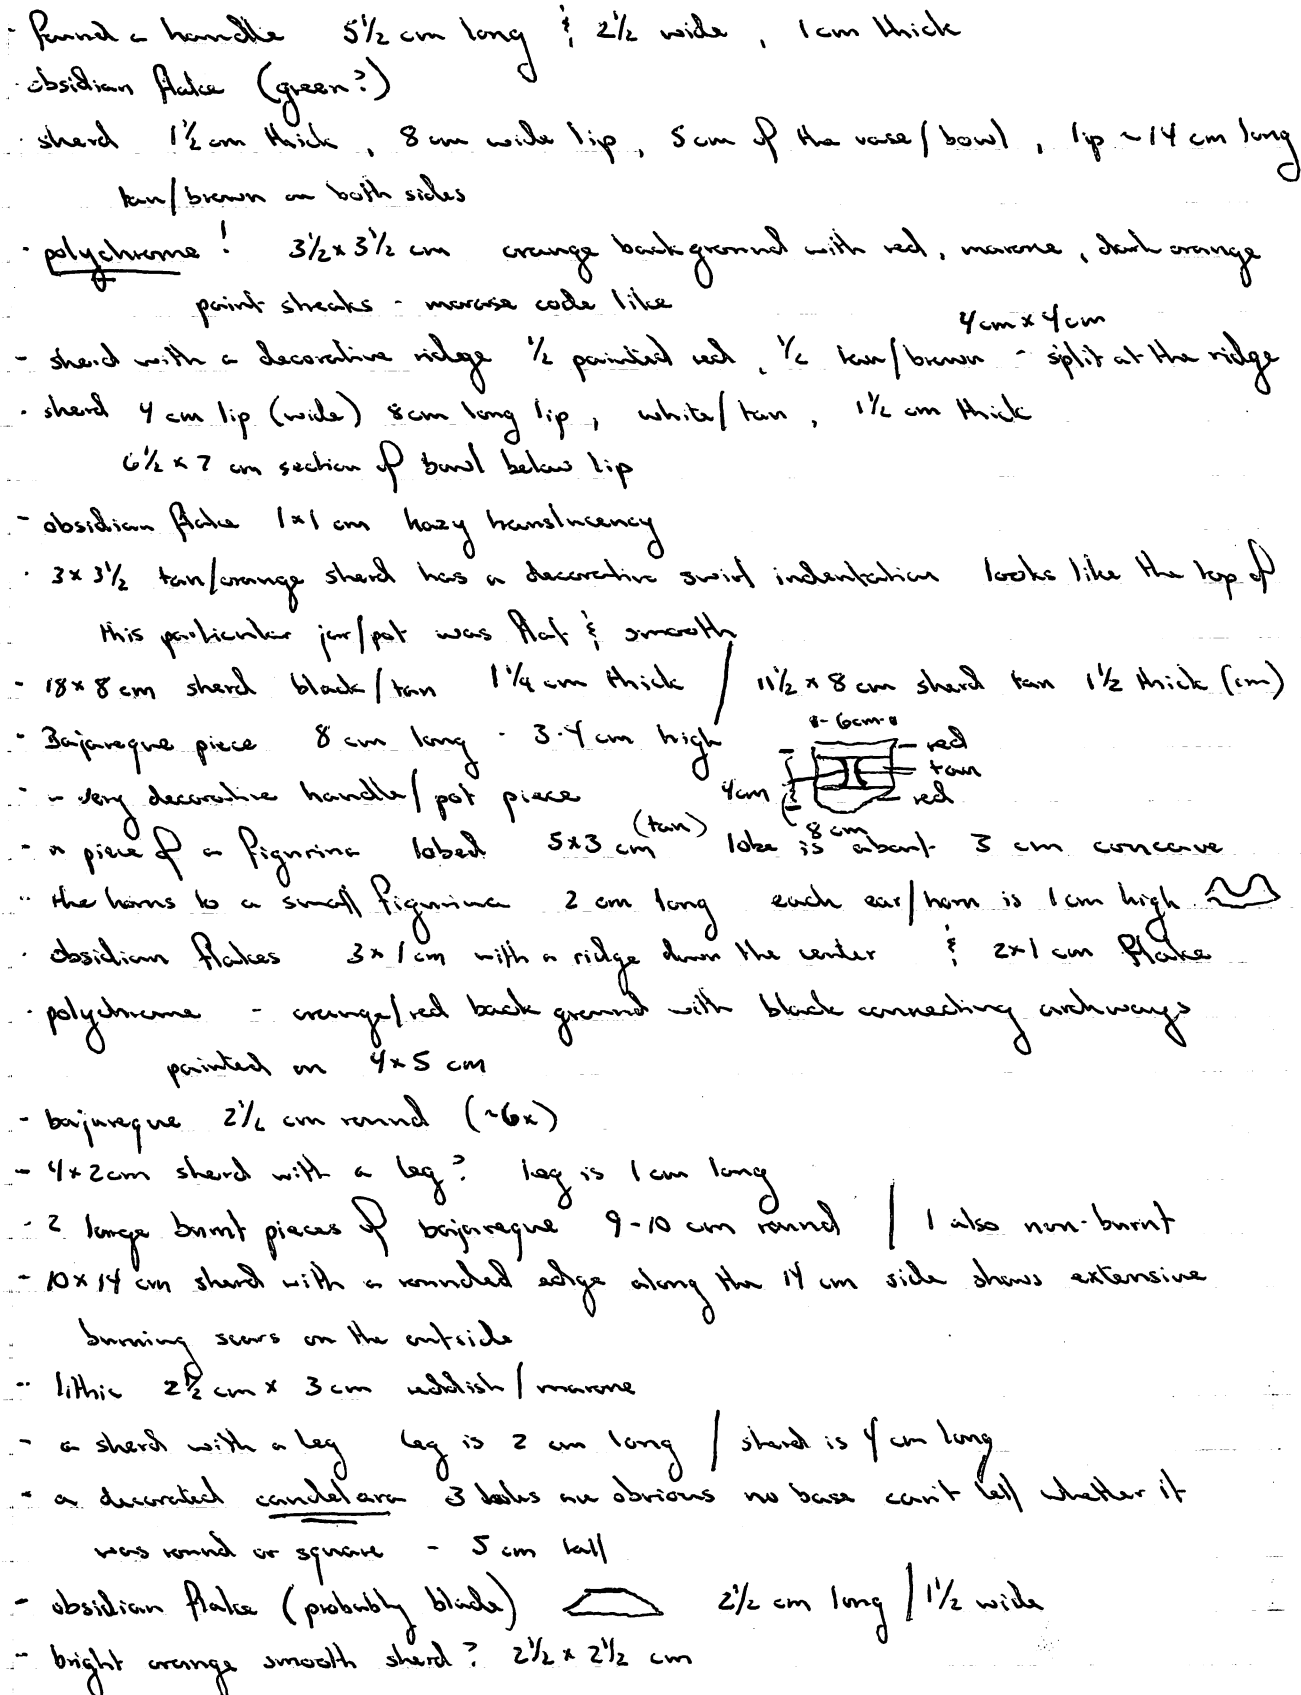 - found a handle 5 1/2 cm long & 2 1/2 wide, 1 cm thick
- obsidian flake (green?)
- sherd 1 1/2 cm thick, 8 cm wide lip, 5 cm of the vase/bowl, lip ~14 cm long
tan/brown on both sides
- polychrome! 3 1/2 x 3 1/2 cm orange background with red, marone, dark orange
paint streaks - morse code like
4cm x 4cm
- sherd with a decorative ridge 1/2 painted red, 1/2 tan/brown - split at the ridge
- sherd 4 cm lip (wide) 8cm long lip, white/tan, 1 1/2 cm thick
6 1/2 x 7 cm section of bowl below lip
- obsidian flake 1x1 cm hazy translucency
- 3 x 3 1/2 tan/orange sherd has a decorative swirl indentation looks like the top of
this particular jar/pot was flat & smooth
- 18 x 8 cm sherd black/tan 1 1/4 cm thick / 11 1/2 x 8 cm sherd tan 1 1/2 thick (cm)
- Bajareque piece 8 cm long - 3-4 cm high
6cm
red
tan
- a very decorative handle/pot piece 4cm red
8 cm
- a piece of a figurine lobed 5x3 cm (tan) lobe is about 3 cm concave
- the horns to a small figurine 2 cm long each ear/horn is 1 cm high
- obsidian flakes 3 x 1 cm with a ridge down the center & 2x1 cm flake
- polychrome - orange/red back ground with black connecting archways
painted on 4x5 cm
- bajareque 2 1/2 cm round (~6x)
- 4x2cm sherd with a leg? leg is 1 cm long
- 2 large burnt pieces of bajareque 9-10 cm round / 1 also non-burnt
- 10 x 14 cm sherd with a rounded edge along the 14 cm side shows extensive
burning scars on the outside
- lithic 2 1/2 cm x 3 cm reddish/marone
- a sherd with a leg leg is 2 cm long / sherd is 4 cm long
- a decorated candelara 3 holes are obvious no base can't tell whether it
was round or square - 5 cm tall
- obsidian flake (probably blade) 2 1/2 cm long / 1 1/2 wide
- bright orange smooth sherd? 2 1/2 x 2 1/2 cm